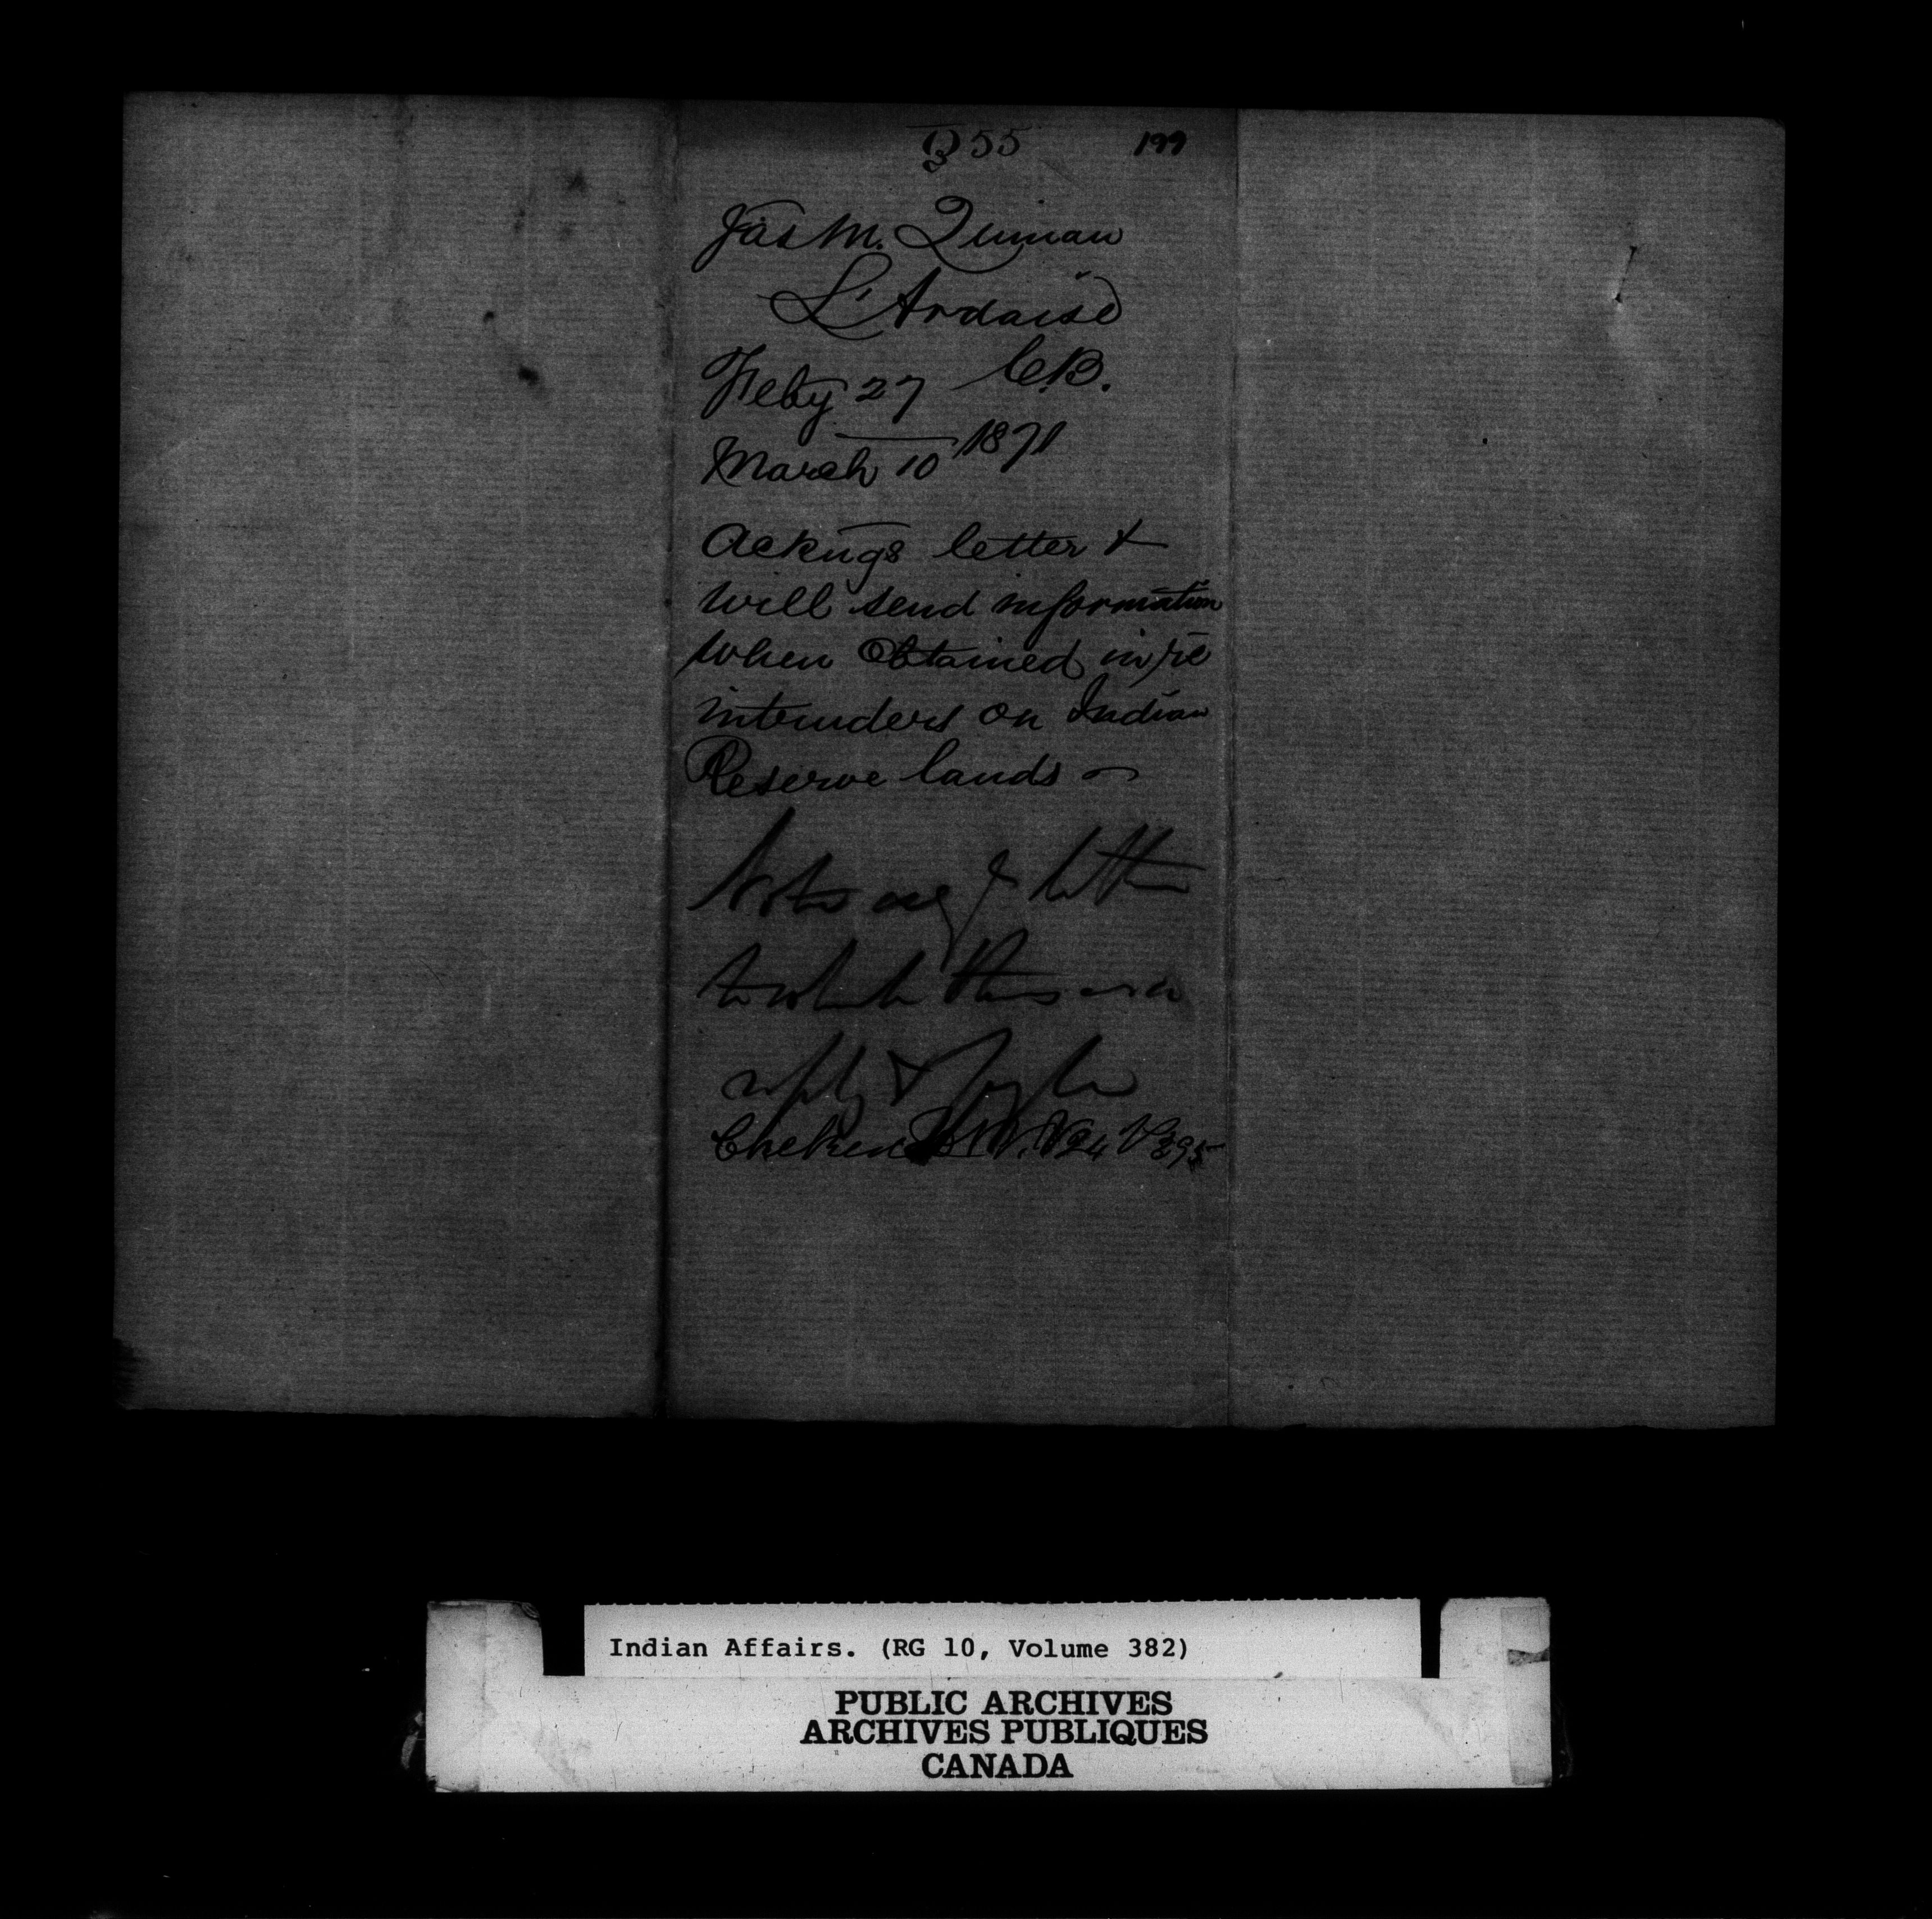 Q55 199
Jas M. Quinan
L'Ardoise
C.B.
Feby 27
March 10 1871
Ackngs letter &
will send information
when Obtained in re
intruders on Indian
Reserve lands
letter
to which this is a
reply &
P 295
Indian Affairs. (RG 10, Volume 382)
PUBLIC ARCHIVES
ARCHIVES PUBLIQUES
CANADA